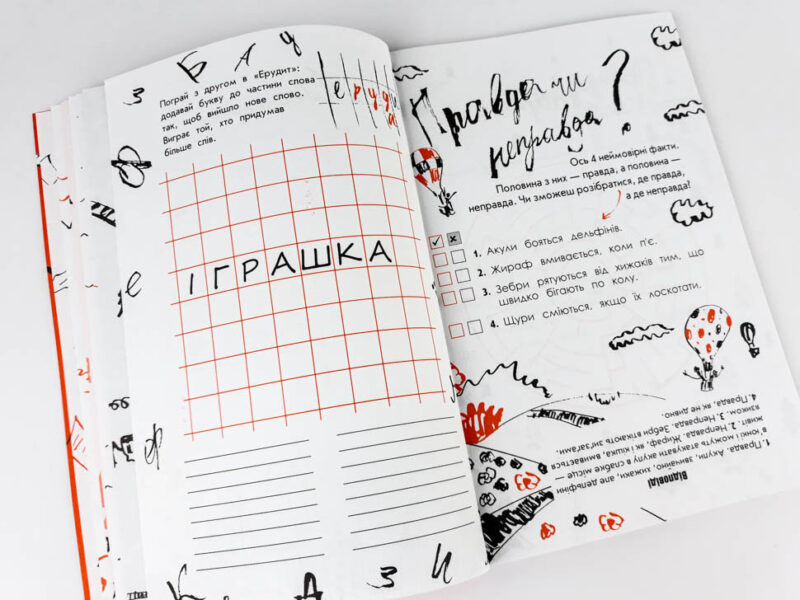 З Б А У
Пограй з другом в «Ерудит»:
додавай букву до частини слова
так, щоб вийшло нове слово.
Виграє той, хто придумав
більше слів.
ІГРАШКА
К А З И
Правда чи
неправда?
Ось 4 неймовірні факти.
Половина з них — правда, а половина —
неправда. Чи зможеш розібратися, де правда,
а де неправда?
1. Акули бояться дельфінів.
2. Жираф вмивається, коли п'є.
3. Зебри рятуються від хижаків тим, що
швидко бігають по колу.
4. Щури сміються, якщо їх лоскотати.
Відповіді
1. Правда. Акули, звичайно, хижаки, але дельфіни
в'юнкі і можуть атакувати акулу в слабке місце —
живіт. 2. Неправда. Жираф, як і кішка, вмивається
язиком. 3. Неправда. Зебри втікають зиґзаґами.
4. Правда, як не дивно.